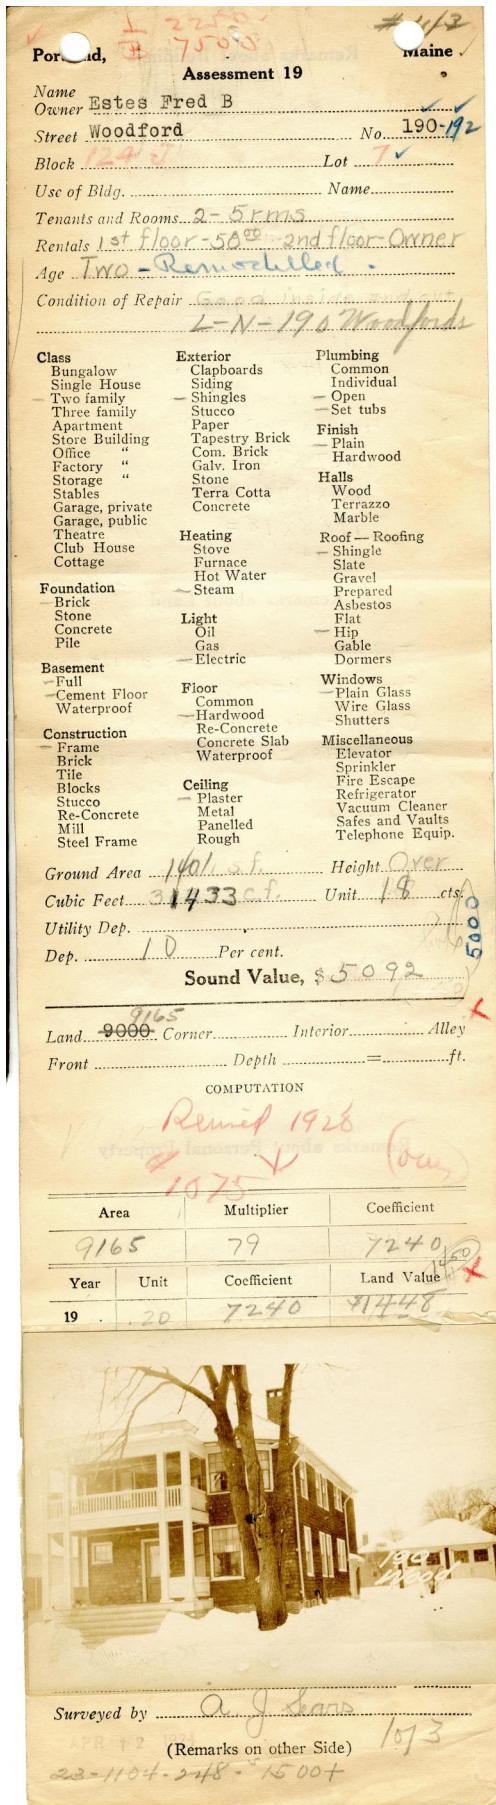 L 2250
B 7500
# 1/3
Portland, Maine
Assessment 19
Name
Owner Estes Fred B
Street Woodford No. 190-192
Block 124 J Lot 7
Use of Bldg. Name
Tenants and Rooms 2-5 rms
Rentals 1st floor-50.00 2nd floor-Owner
Age Two - Remodelled.
Condition of Repair Good inside and out
L-N-190 Woodfords
Class
Bungalow
Single House
Two family
Three family
Apartment
Store Building
Office "
Factory "
Storage "
Stables
Garage, private
Garage, public
Theatre
Club House
Cottage
Foundation
Brick
Stone
Concrete
Pile
Basement
Full
Cement Floor
Waterproof
Construction
Frame
Brick
Tile
Blocks
Stucco
Re-Concrete
Mill
Steel Frame
Exterior
Clapboards
Siding
Shingles
Stucco
Paper
Tapestry Brick
Com. Brick
Galv. Iron
Stone
Terra Cotta
Concrete
Heating
Stove
Furnace
Hot Water
Steam
Light
Oil
Gas
Electric
Floor
Common
Hardwood
Re-Concrete
Concrete Slab
Waterproof
Ceiling
Plaster
Metal
Panelled
Rough
Plumbing
Common
Individual
Open
Set tubs
Finish
Plain
Hardwood
Halls
Wood
Terrazzo
Marble
Roof — Roofing
Shingle
Slate
Gravel
Prepared
Asbestos
Flat
Hip
Gable
Dormers
Windows
Plain Glass
Wire Glass
Shutters
Miscellaneous
Elevator
Sprinkler
Fire Escape
Refrigerator
Vacuum Cleaner
Safes and Vaults
Telephone Equip.
Ground Area 1401 s.f. Height Over
Cubic Feet 31433 c.f. Unit 18 cts.
Utility Dep.
5000
Dep. 10 Per cent.
Sound Value, $ 5092
9165
Land 9000 Corner Interior Alley
Front Depth = ft.
COMPUTATION
Revised 1928
(over)
1075
Area Multiplier Coefficient
9165 79 7240
1450
Year Unit Coefficient Land Value
19 .20 7240 $1448
190
Wood
Surveyed by A J Sears
APR 12
(Remarks on other Side) 1 of 3
23-1104-248- 1500+